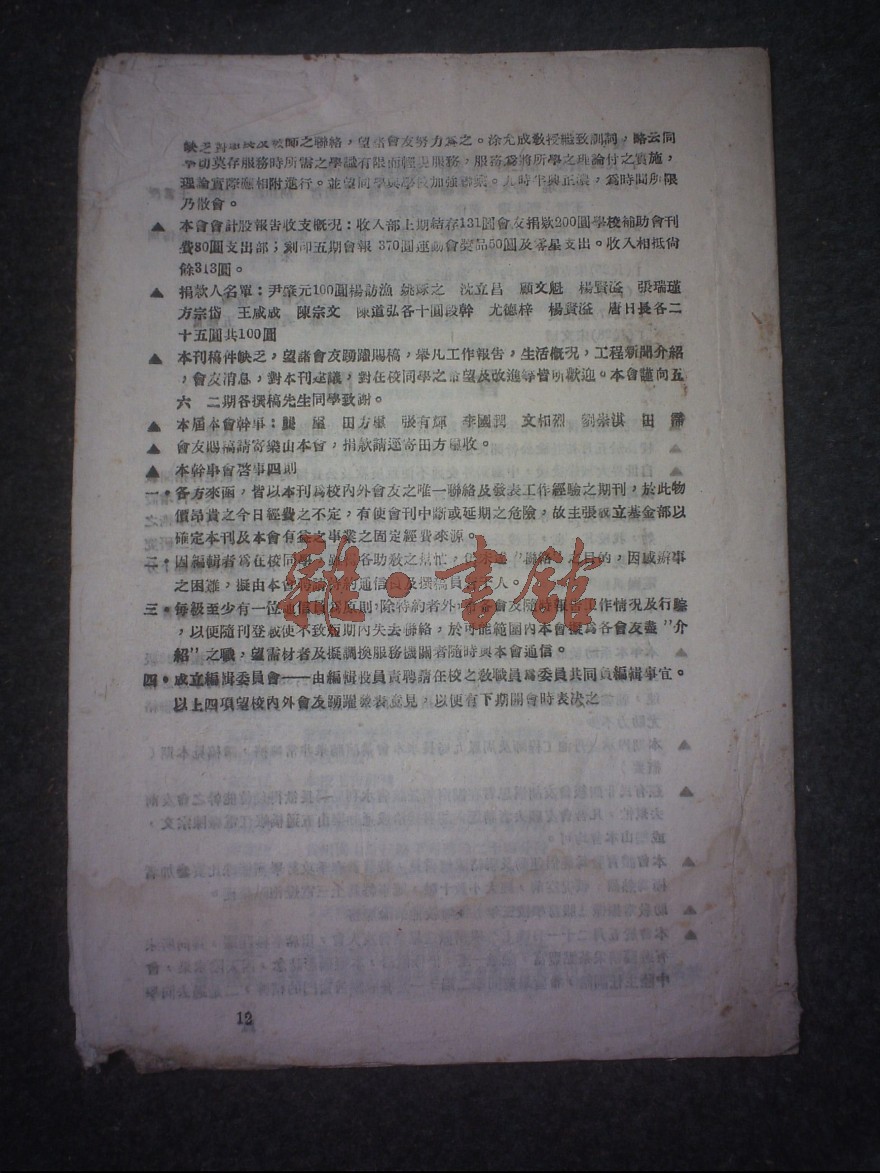 缺乏對車埃及教師之聯絡,望諸會友努力爲之。涂允成敎授繼致訓詞,略云同
學切莫存服務時所需之學識有限而輕於服務,服務爲將所學之理論付之實施,
理論實際應相附進行。並望同學與學校加強聯繫。九時半興正濃,爲時間所限
乃散會。
▲ 本會會計股報告收支概況:收入部上期結存131圓會友捐欵200圓學校補助會刊
費80圓支出部;刻印五期會報 370圓運動會獎品50圓及零星支出。收入相抵尙
餘313圓。
▲ 捐款人名單:尹肇元100圓楊訪漁 姚琢之 沈立昌 顧文魁 楊賢溢 張瑞瑾
方宗岱 王咸成 陳宗文 陳道弘各十圓段幹 尤德梓 楊賢溢 唐日長各二
十五圓共100圓
▲ 本刊稿件缺乏,望諸會友踴躍賜稿,舉凡工作報告,生活概況,工程新聞介紹
,會友消息,對本刊建議,對在校同學之希望及改進等皆所歡迎。本會謹向五
六 二期各撰稿先生同學致謝。
▲ 本屆本會幹事:龔 田方 張有輝 李國潤 文相烈 劉崇淇 田
▲ 會友賜稿請寄樂山本會,捐款請逕寄田方 收。
▲ 本幹事會啓事四則
一・各方來函,皆以本刊爲校內外會友之唯一聯絡及發表工作經驗之期刊,於此物
價昂貴之今日經費之不定,有使會刊中斷或延期之危險,故主張設立基金部以
確定本刊及本會有益之事業之固定經費來源。
二・因編輯者爲在校同學,雖得各助敎之幫忙,仍未達“聯絡”之目的,因感辦事
之困難,擬由本會聘請特約通信員及撰稿員若干人。
三・每級至少有一位通信員爲原則,除特約者外,希望會友隨時報告工作情況及行踪
,以便隨刊登載使不致短期內失去聯絡,於可能範圍內本會擬爲各會友盡”介
紹”之職,望需材者及擬調換服務機關者隨時與本會通信。
四・成立編輯委員會——由編輯股負責聘請在校之敎職員爲委員共同負編輯事宜。
以上四項望校內外會友踴躍發表意見,以便在下期開會時表決之
12
報・書館